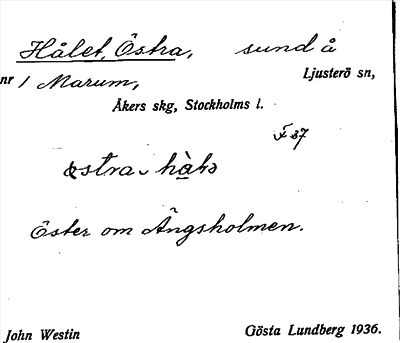 Hålet, Östra, sund å
nr 1 Marum, Ljusterö sn,
Åkers skg, Stockholms l.
F 37
Öster om Ängsholmen.
John Westin Gösta Lundberg 1936.